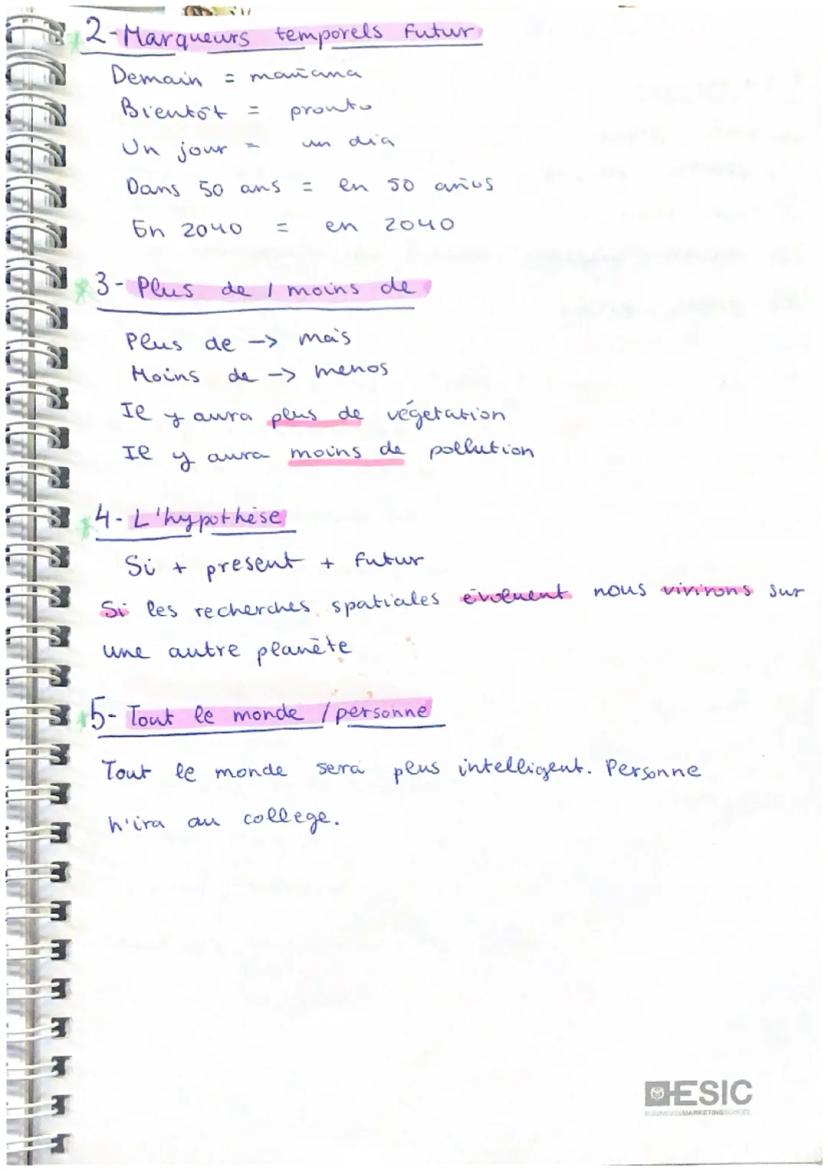 2- Marqueurs temporels futur
Demain = mañana
Bientôt = pronto
Un jour = un día
Dans 50 ans = en 50 años
En 2040 = en 2040
3- Plus de / moins de
Plus de -> más
Moins de -> menos
Il y aura plus de végetation
Il y aura moins de pollution
4- L'hypothèse
Si + present + futur
Si les recherches spatiales évoluent nous vivirons sur
une autre planète
5- Tout le monde / personne
Tout le monde sera plus intelligent. Personne
n'ira au college.
ESIC
BUSINESS&MARKETINGSCHOOL